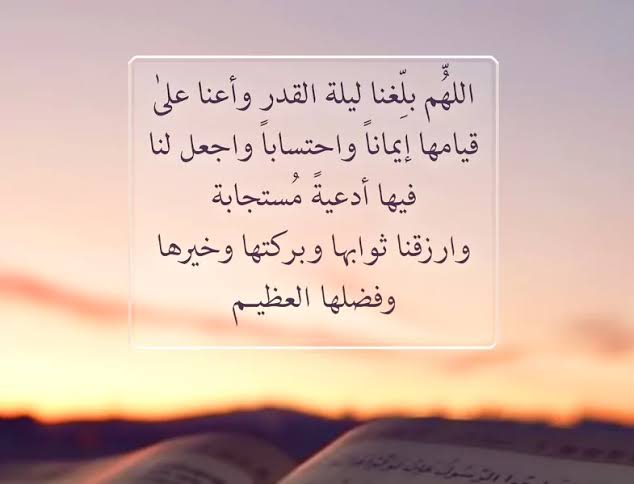 اللهُّم بلِّغنا ليلة القدر وأعنا علىٰ
قيامها إيماناً واحتساباً واجعل لنا
فيها أدعيةً مُستجابة
وارزقنا ثوابها وبركتها وخيرها
وفضلها العظيـم